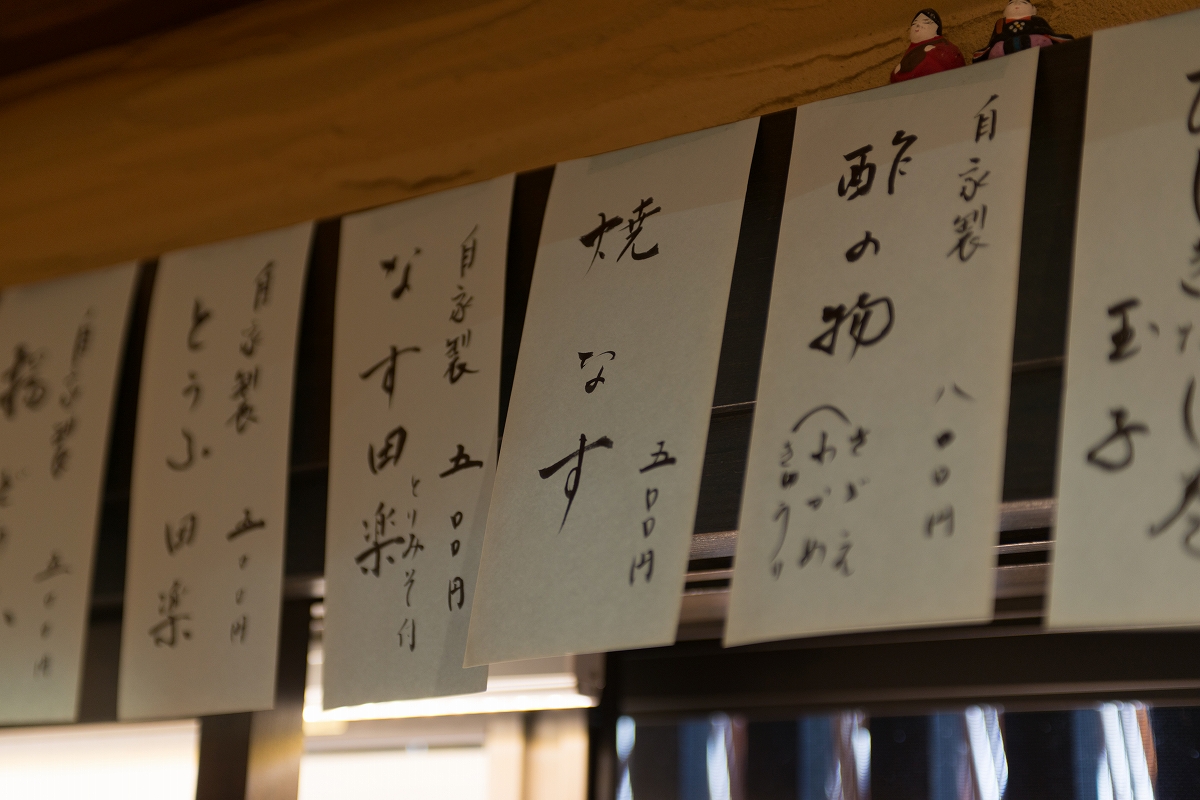 玉子
自家製
酢の物
八〇〇円
(さざえ
わかめ
きゅうり
焼なす
五〇〇円
自家製
五〇〇円
なす田楽
とりみそ付
自家製
五〇〇円
とうふ田楽
自家製
五〇〇円